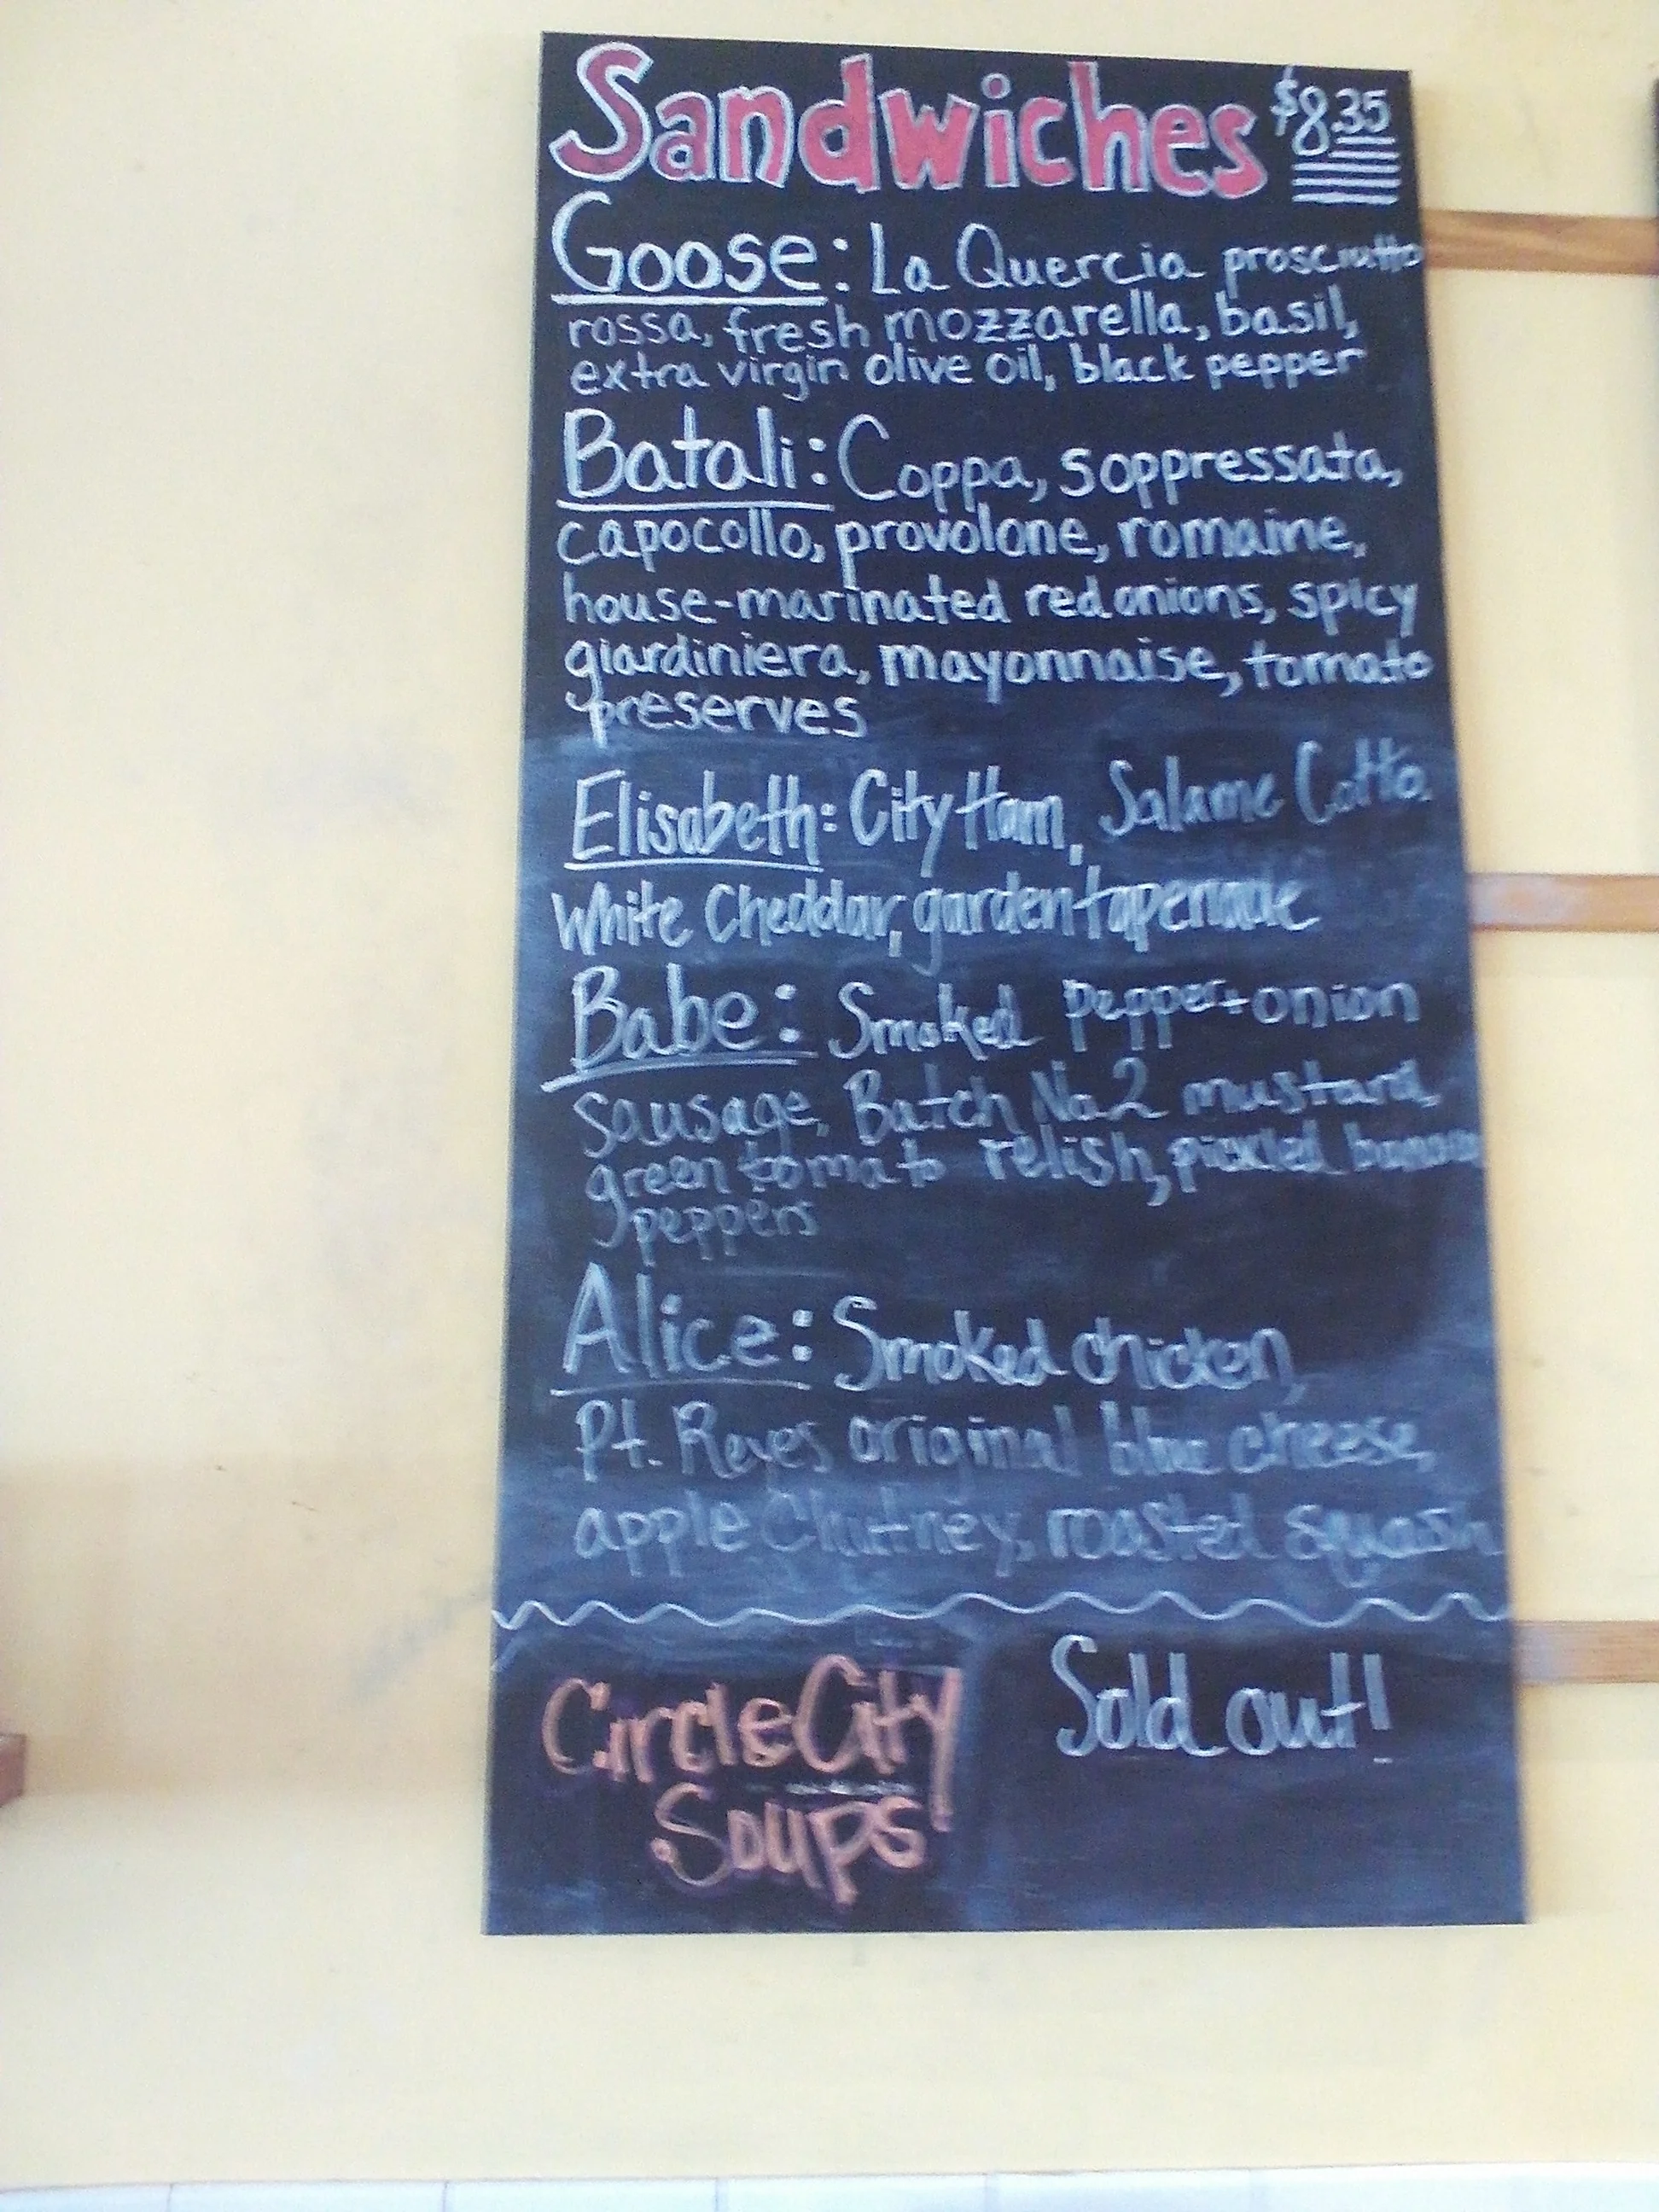 Sandwiches $8.35
Goose: La Quercia prosciutto
rossa, fresh mozzarella, basil,
extra virgin olive oil, black pepper
Batali: Coppa, soppressata,
capocollo, provolone, romaine,
house-marinated red onions, spicy
giardiniera, mayonnaise, tomato
preserves
Elisabeth: City Ham, Salame Cotto,
White Cheddar, garden tapenade
Babe: Smoked pepper + onion
sausage, Batch No.2 mustard,
green tomato relish, pickled banana
peppers
Alice: Smoked chicken,
Pt. Reyes original blue cheese,
apple Chutney, roasted squash
Circle City Sold out!
Soups